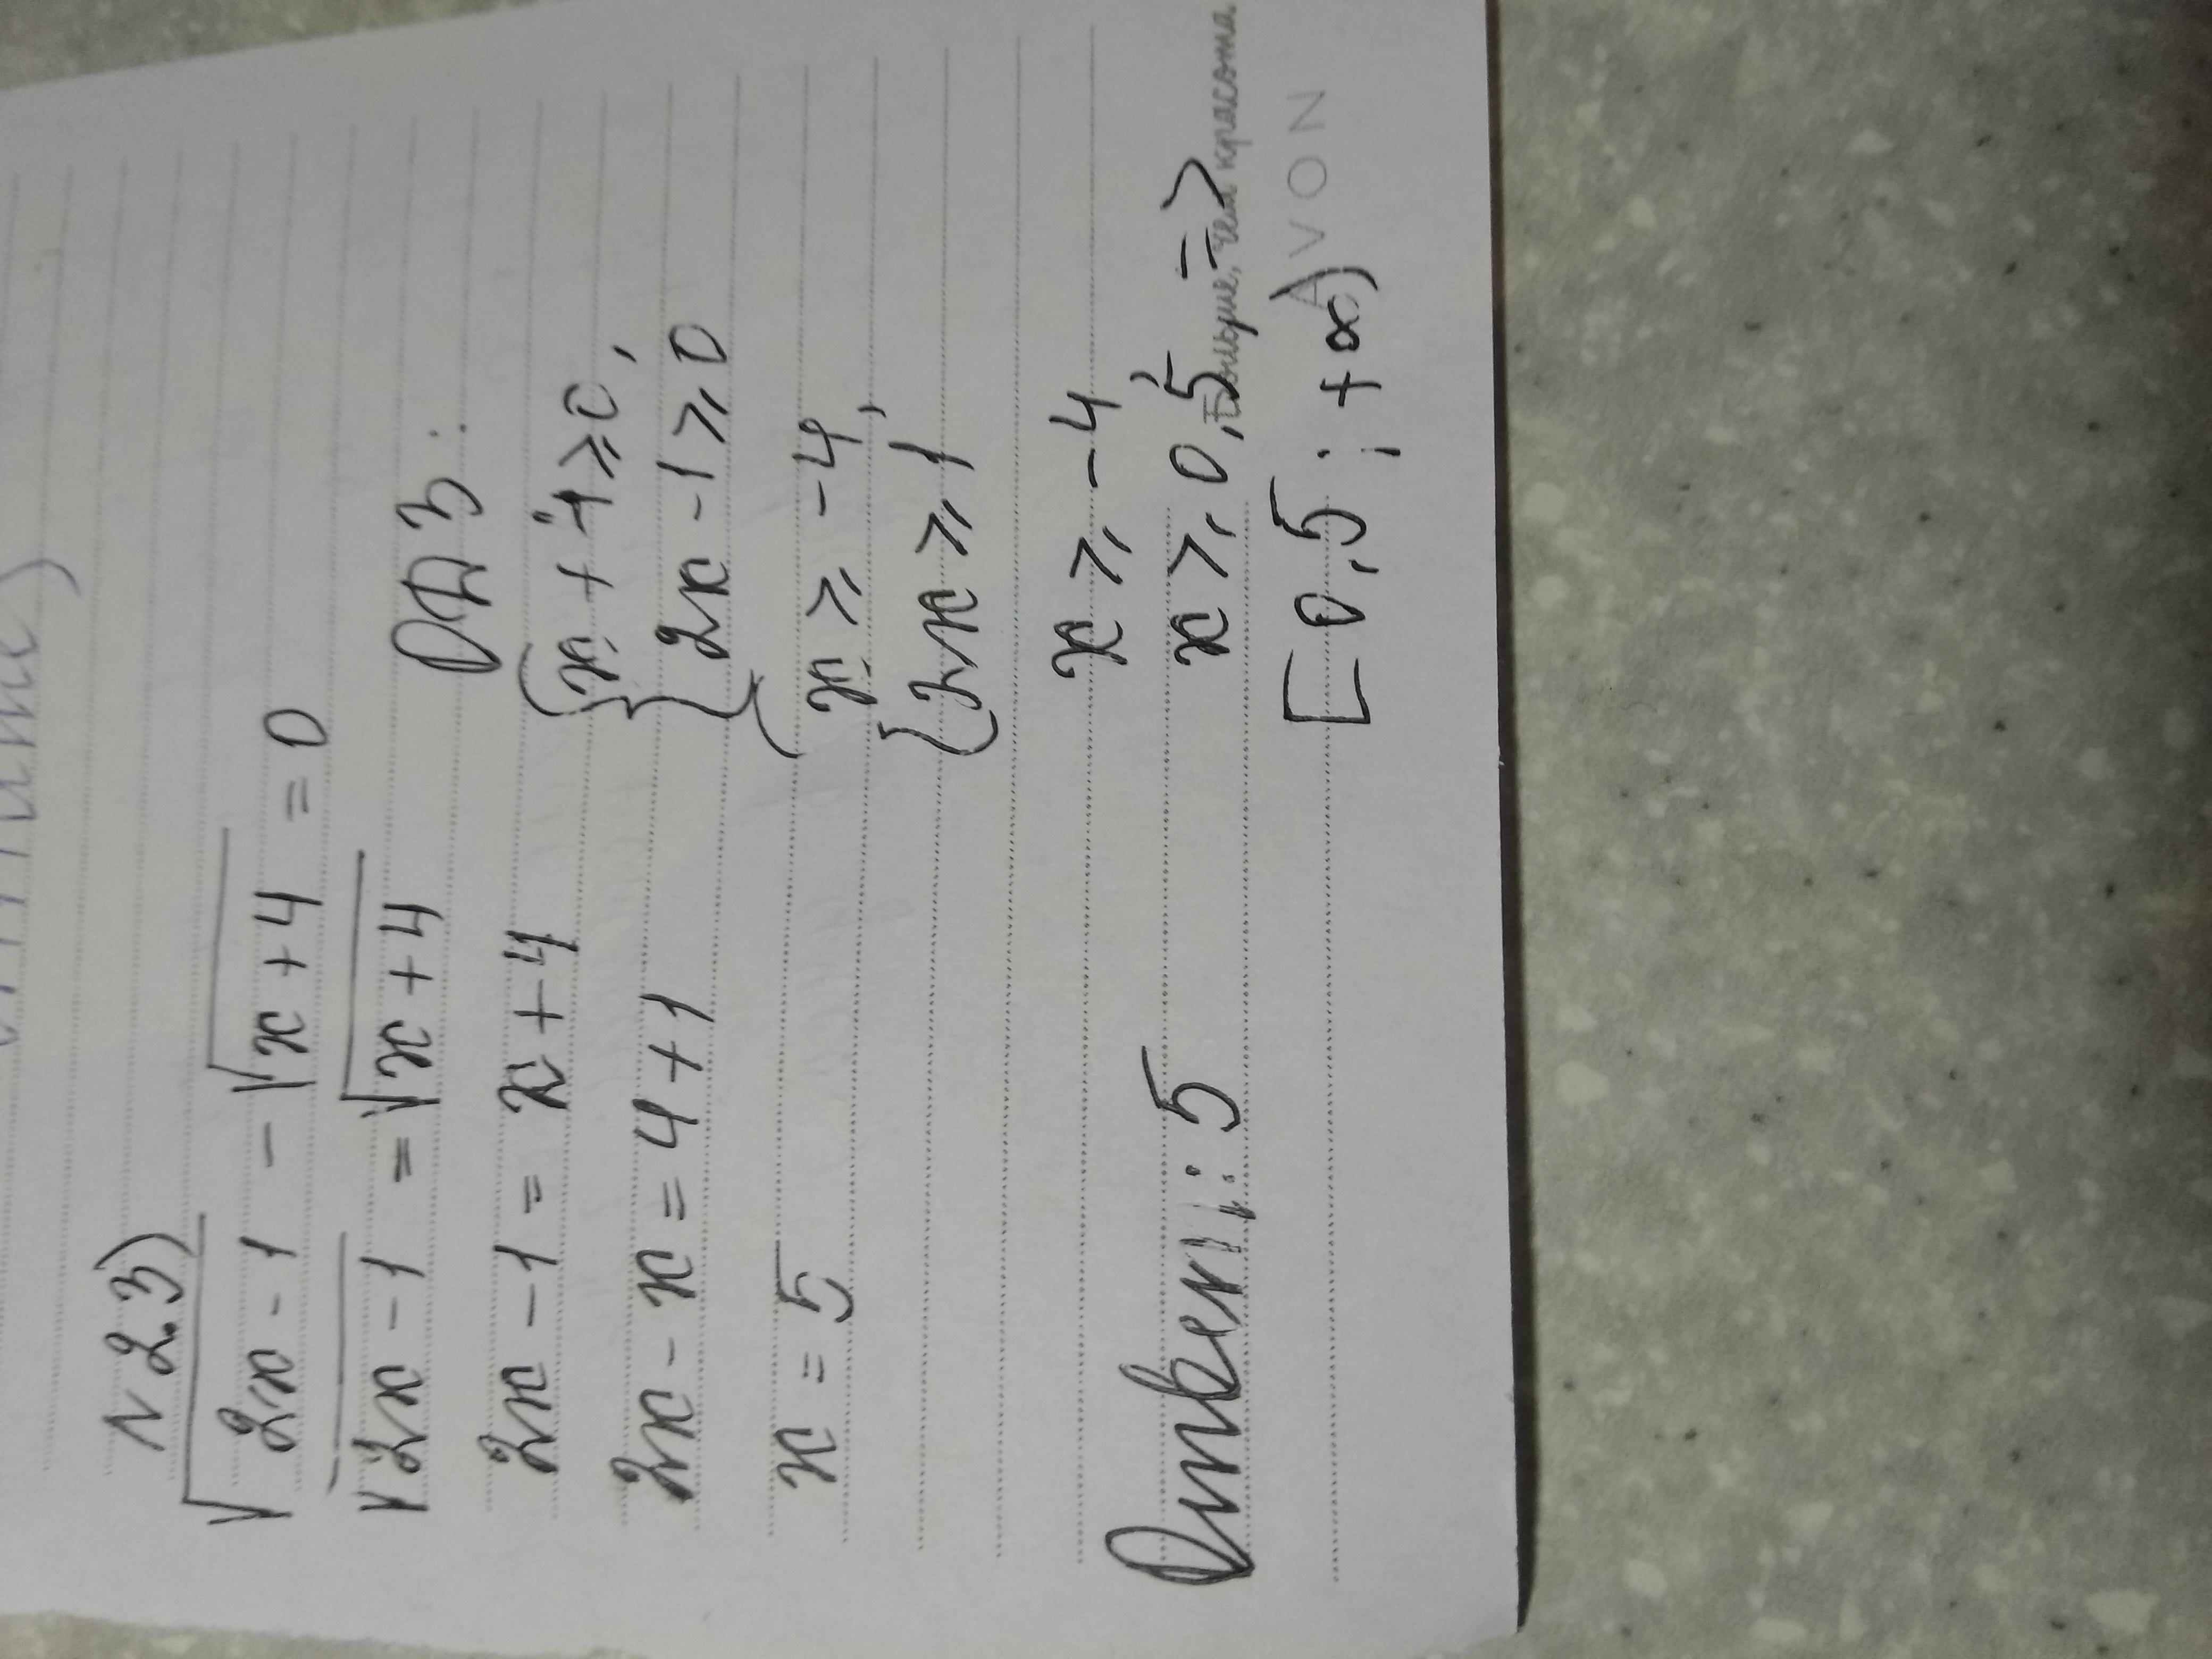 N 2.3)
√2x - 1 - √x + 4 = 0
√2x - 1 = √x + 4
2x - 1 = x + 4
2x - x = 4 + 1
x = 5
Ответ: 5
ОДЗ:
{x + 4 ≥ 0,
2x - 1 ≥ 0
{x ≥ -4,
2x ≥ 1
x ≥ -4,
x ≥ 0,5 =>
[0,5; +∞)
больше, чем красота
AVON